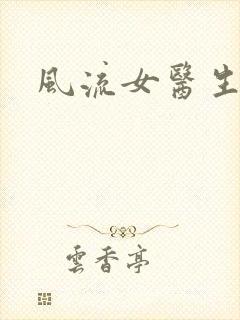 風流女醫生
雲香亭